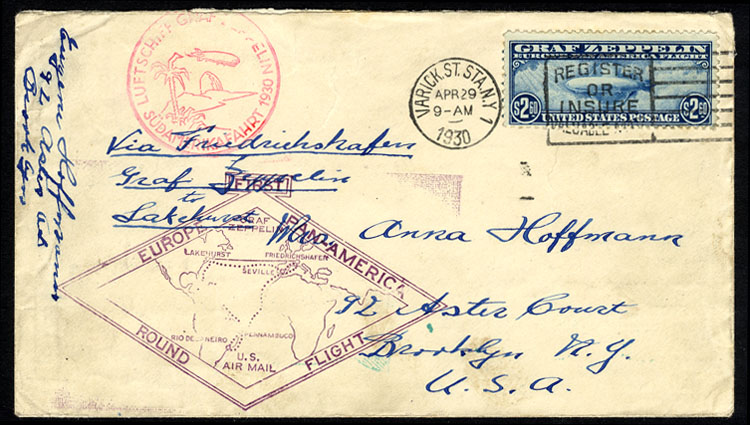 Eugene Hoffmann
92 Aster Ct.
Brooklyn
LUFTSCHIFF GRAF ZEPPELIN
SÜDAMERIKAFAHRT 1930
VARICK. ST. STA. N.Y. 1
APR 29
9-AM
1930
GRAF ZEPPELIN
EUROPE PAN-AMERICA FLIGHT
REGISTER
OR
INSURE
VALUABLE
$2.60 $2.60
UNITED STATES POSTAGE
Via Friedrichshafen
Graf Zeppelin
to
Lakehurst
FIRST
EUROPE PAN-AMERICA
GRAF
ZEPPELIN
LAKEHURST FRIEDRICHSHAFEN
SEVILLE
RIO DE JANEIRO PERNAMBUCO
U.S.
AIR MAIL
ROUND FLIGHT
Miss Anna Hoffmann
92 Aster Court
Brooklyn N.Y.
U.S.A.